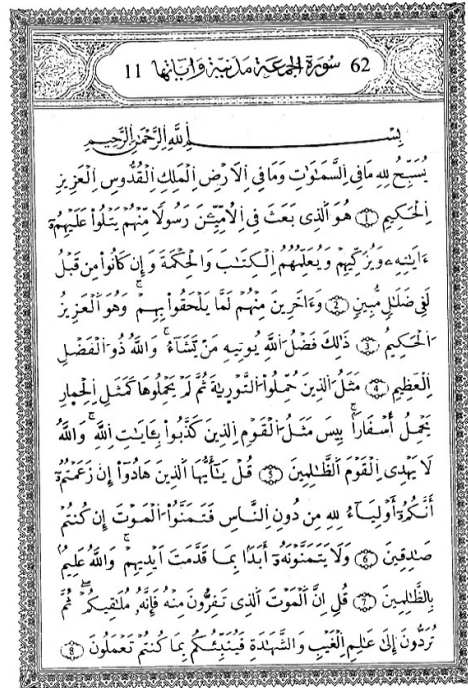 62 سورة الجمعة مدنية وءاياتها 11
بِسْمِ اِللَّهِ اِلرَّحْمَٰنِ اِلرَّحِيمِ
يُسَبِّحُ لِلهِ مَا فِي اِلسَّمَٰوَٰتِ وَمَا فِي اِلَارْضِ اِلْمَلِكِ اِلْقُدُّوسِ اِلْعَزِيزِ
اِلْحَكِيمِ ۝١ هُوَ اَلذِي بَعَثَ فِي اِلُامِّيِّـۧنَ رَسُولاً مِّنْهُمْ يَتْلُواْ عَلَيْهِمُۥٓ
ءَايَٰتِهِۦ وَيُزَكِّيهِمْ وَيُعَلِّمُهُمُ اُلْكِتَٰبَ وَالْحِكْمَةَ وَإِن كَانُواْ مِن قَبْلُ
لَفِي ضَلَٰلٍ مُّبِينٍ ۝٢ وَءَاخَرِينَ مِنْهُمْ لَمَّا يَلْحَقُواْ بِهِمْ وَهُوَ اَلْعَزِيزُ
اُلْحَكِيمُ ۝٣ ذَٰلِكَ فَضْلُ اُللَّهِ يُوتِيهِ مَنْ يَّشَآءُ وَاللَّهُ ذُو اُلْفَضْلِ
اِلْعَظِيمِ ۝٤ مَثَلُ اُلذِينَ حُمِّلُواْ اُلتَّوْرَىٰةَ ثُمَّ لَمْ يَحْمِلُوهَا كَمَثَلِ اِلْحِمَارِ
يَحْمِلُ أَسْفَاراً بِيسَ مَثَلُ اُلْقَوْمِ اِلذِينَ كَذَّبُواْ بِـَٔايَٰتِ اِللَّهِ وَاللَّهُ
لَا يَهْدِي اِلْقَوْمَ اَلظَّٰلِمِينَ ۝٥ قُلْ يَٰٓأَيُّهَا اَلذِينَ هَادُوٓاْ إِن زَعَمْتُمُۥٓ
أَنَّكُمُۥٓ أَوْلِيَآءُ لِلهِ مِن دُونِ اِلنَّاسِ فَتَمَنَّوُاْ اُلْمَوْتَ إِن كُنتُمْ
صَٰدِقِينَ ۝٦ وَلَا يَتَمَنَّوْنَهُۥٓ أَبَداً بِمَا قَدَّمَتَ اَيْدِيهِمْ وَاللَّهُ عَلِيمٌ
بِالظَّٰلِمِينَ ۝٧ قُلِ اِنَّ اَلْمَوْتَ اَلذِي تَفِرُّونَ مِنْهُ فَإِنَّهُۥ مُلَٰقِيكُمْ ثُمَّ
تُرَدُّونَ إِلَىٰ عَٰلِمِ اِلْغَيْبِ وَالشَّهَٰدَةِ فَيُنَبِّئُكُم بِمَا كُنتُمْ تَعْمَلُونَ ۝٨